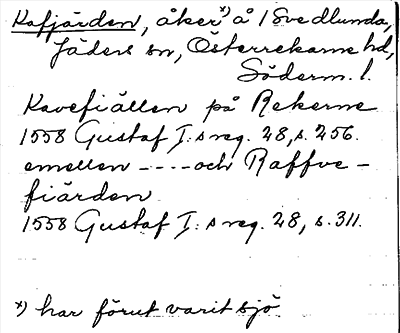 Kafjärden, åker x) å 1 Svedlunda,
Jäders sn, Österrekarne hd,
Söderm. l.
Kavefiällen på Rekerne
1558 Gustaf I:s reg. 28, s. 256.
emellen ---- och Raffve-
fiärden
1558 Gustaf I:s reg. 28, s. 311.
x) har förut varit sjö